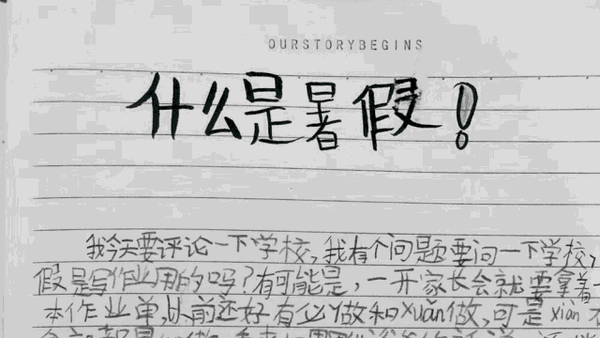 OURSTORYBEGINS
什么是暑假!
我今天要评论一下学校,我有个问题要问一下学校,
假是写作业用的吗?有可能是,一开家长会就要拿着一
本作业单,以前还好有必做和xuǎn做,可是xiàn